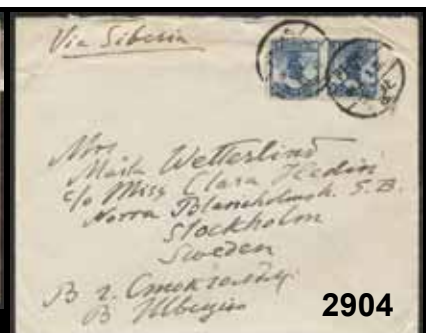 Via Siberia
Mrs
Maila Wetterlind
c/o Miss Clara Hedin
Norra Blasieholmsh. 5.B.
Stockholm
Sweden
В г. Стокгольмъ
В Швецiю
2904